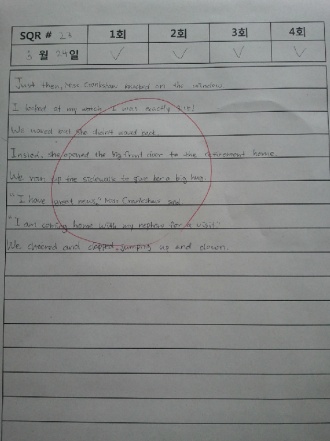 SQR # 23 1회 2회 3회 4회
월 29일
Just then, Mrs Crankshaw on the window
I looked at my watch. I was exactly
We waved and she didnt waved back.
Inside, she opened the big front door to the retirement home.
We ran up the sidewalk to give her a big hug.
"I have great news," Mrs Crankshaw said
"I am coming home with my nephew for a visit."
We cheered and clapped, jumping up and down.